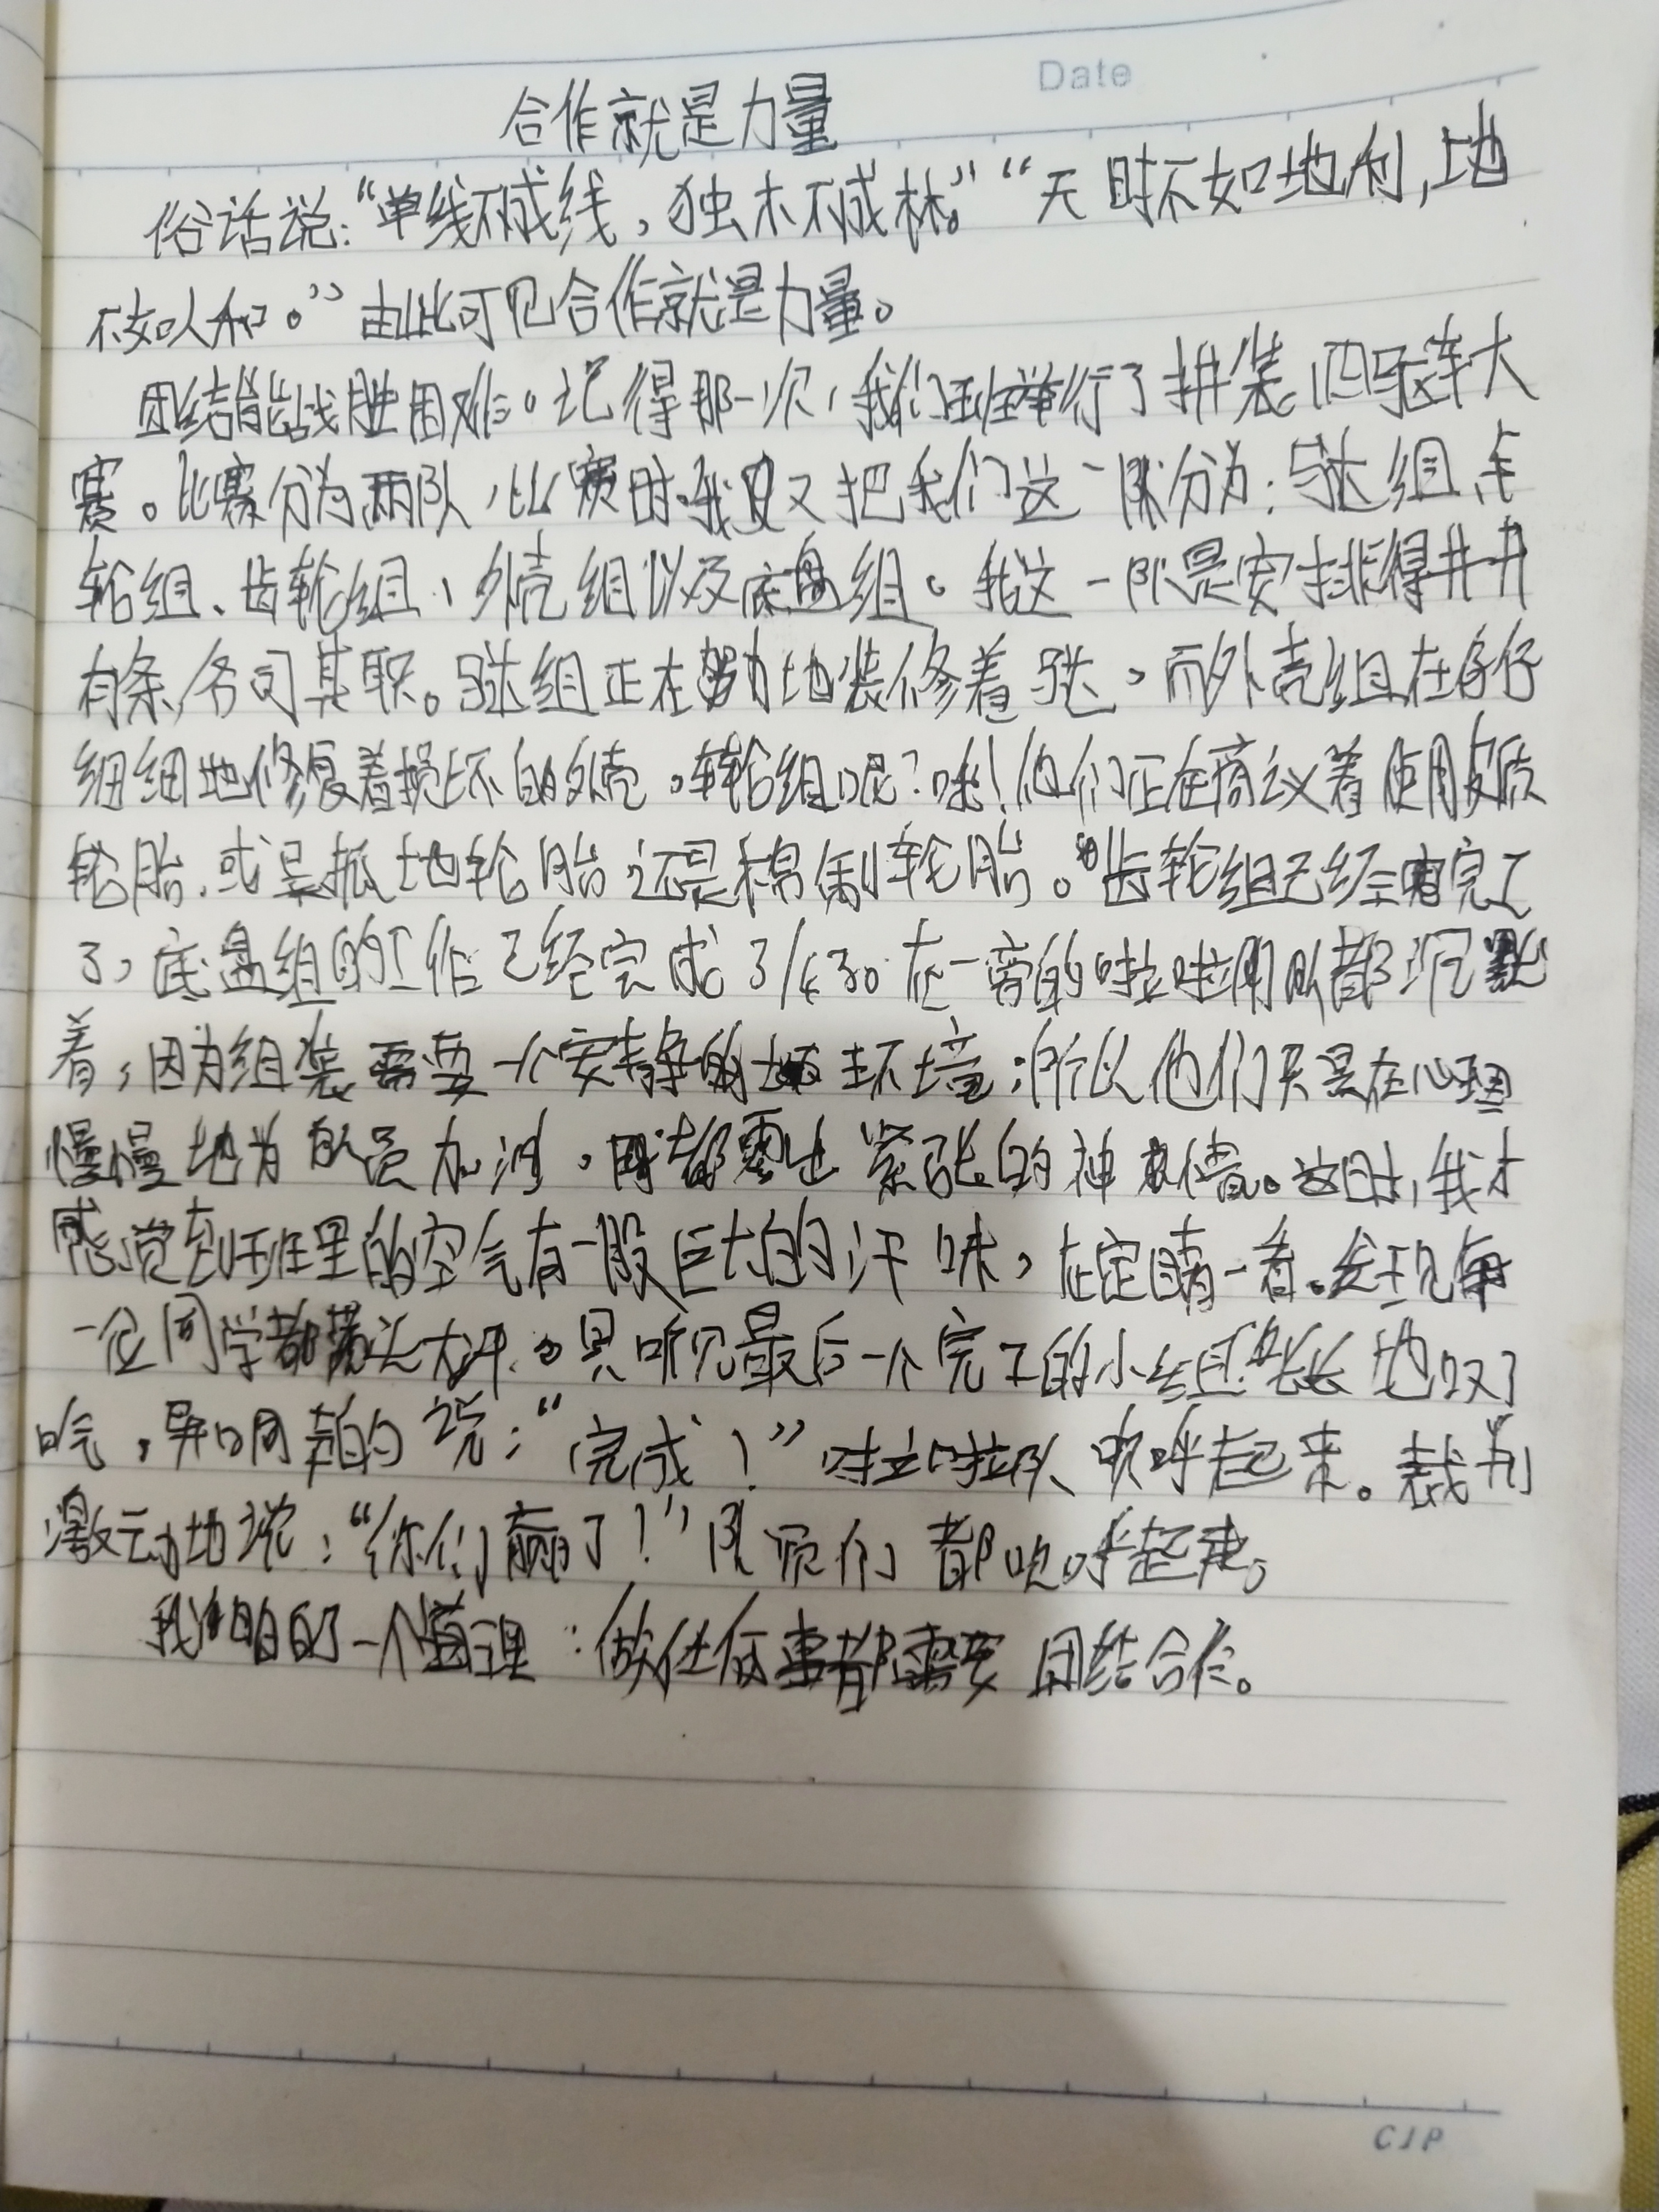 Date
合作就是力量
俗话说：“单线不成线，独木不成林。”“天时不如地利，地
不如人和。”由此可见合作就是力量。
团结能战胜困难。记得那一次，我们班举行了拼装四驱车大
赛。比赛分为两队，比赛时我又把我们这一队分为：马达组、车
轮组、齿轮组、外壳组以及底盘组。我这一队是安排得井井
有条，各司其职。马达组正在努力地装修着马达，而外壳组在仔仔
细细地修复着损坏的外壳。车轮组呢？哦！他们正在商议着使用皮质
轮胎，或是抓地轮胎还是棉制轮胎。齿轮组已经完工
了，底盘组的工作已经完成3/4了。在一旁的啦啦队都沉默
着，因为组装需要一个安静的环境，所以他们只是在心理
慢慢地为队员加油，同时都露出紧张的神情。这时，我才
感觉到班里的空气有一股巨大的汗味，在定睛一看。发现每
一位同学都满头大汗。只听见最后一个完工的小组长长地叹了
口气，异口同声的说：“完成！”啦啦队欢呼起来。裁判
激动地说：“你们赢了！”队员们都欢呼起来。
我明白了一个道理：做任何事都需要团结合作。
CJP